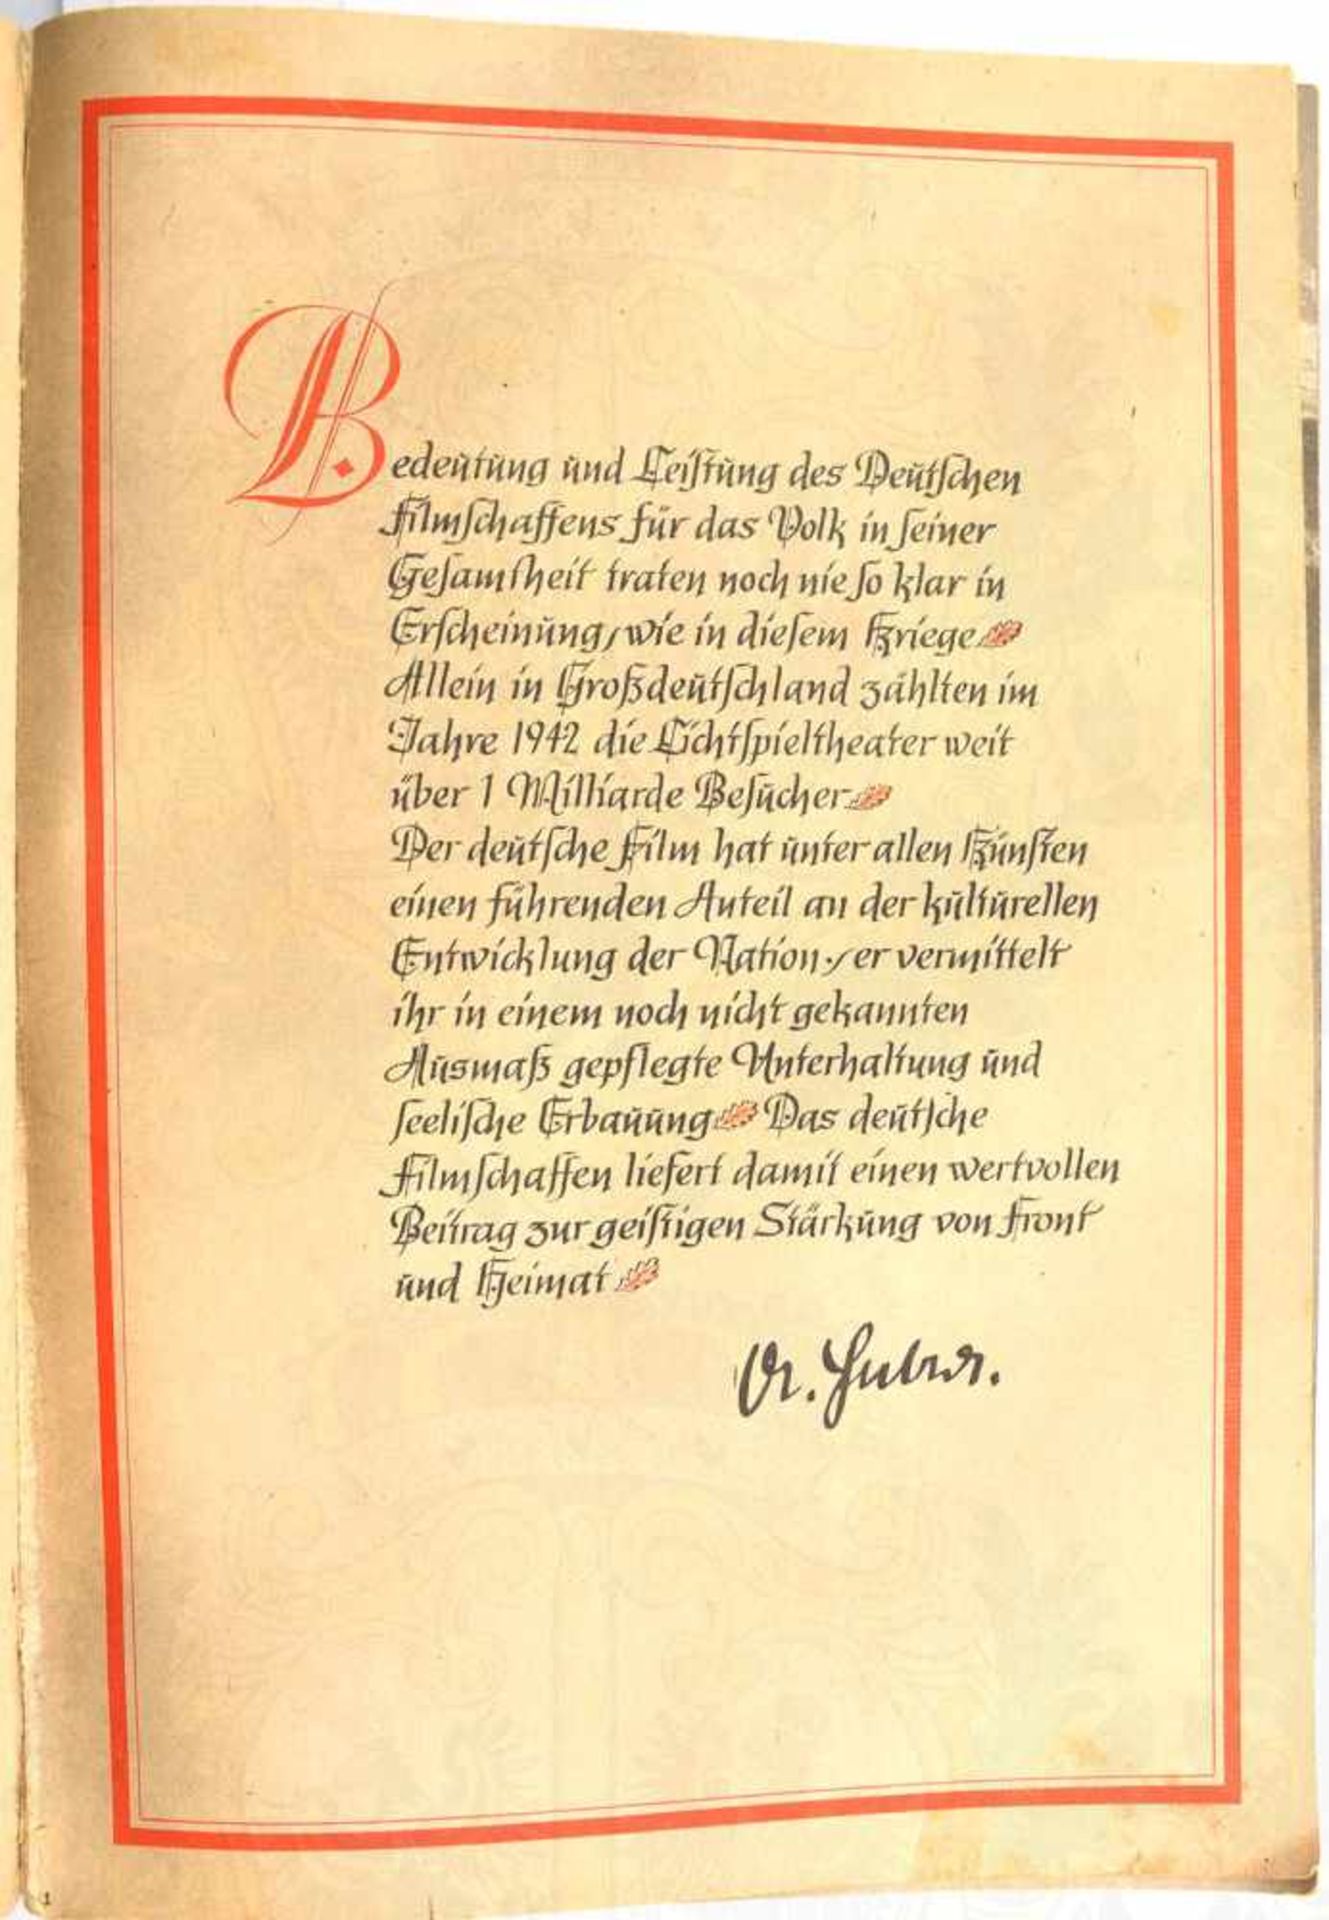 Bedeutung und Leistung des Deutschen
Filmschaffens für das Volk in seiner
Gesamtheit traten noch nie so klar in
Erscheinung, wie in diesem Kriege
Allein in Großdeutschland zählten im
Jahre 1942 die Lichtspieltheater weit
über 1 Milliarde Besucher
Der deutsche Film hat unter allen Künsten
einen führenden Anteil an der kulturellen
Entwicklung der Nation; er vermittelt
ihr in einem noch nicht gekannten
Ausmaß gepflegte Unterhaltung und
seelische Erbauung Das deutsche
Filmschaffen liefert damit einen wertvollen
Beitrag zur geistigen Stärkung von Front
und Heimat
Dr. Huber.
1